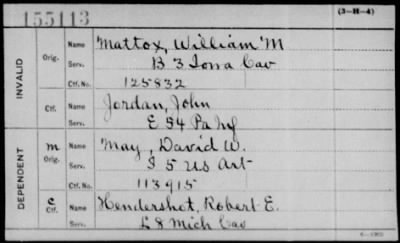 155113
(3-H-4)
INVALID
Orig.
Name
Mattox, William M
Serv.
B 3 Iowa Cav
Ctf. No.
125832
Ctf.
Name
Jordan, John
Serv.
E 54 Pa Inf
DEPENDENT
m
Orig.
Name
May, David W.
Serv.
I 5 US Art
Ctf. No.
113915
c
Ctf.
Name
Hendershot, Robert E.
Serv.
L 8 Mich Cav